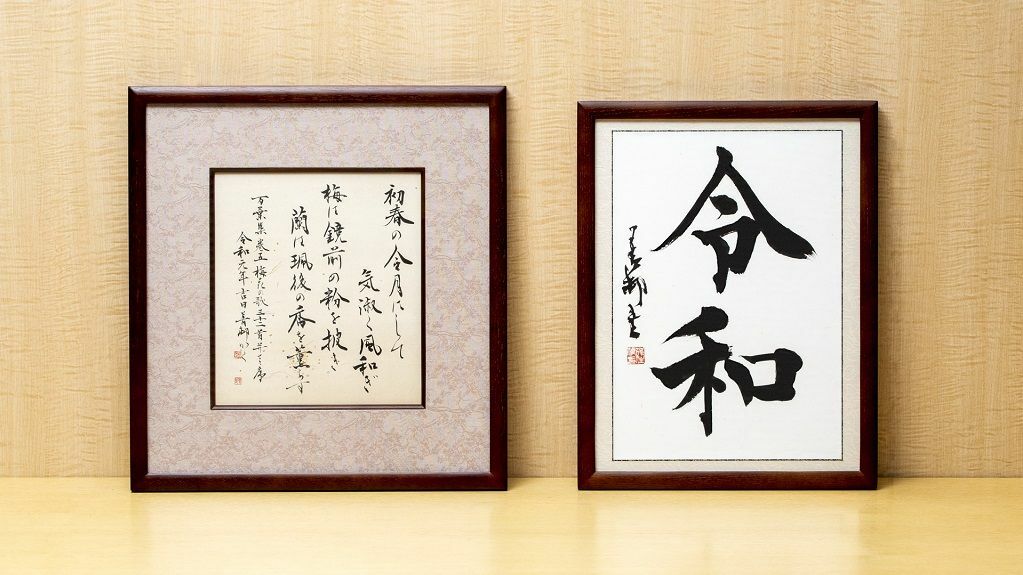 初春の令月にして
気淑く風和ぎ
梅は鏡前の粉を披き
蘭は珮後の香を薫らす
万葉集 巻五 梅花の歌三十二首并せて序
令和元年 吉田
令和